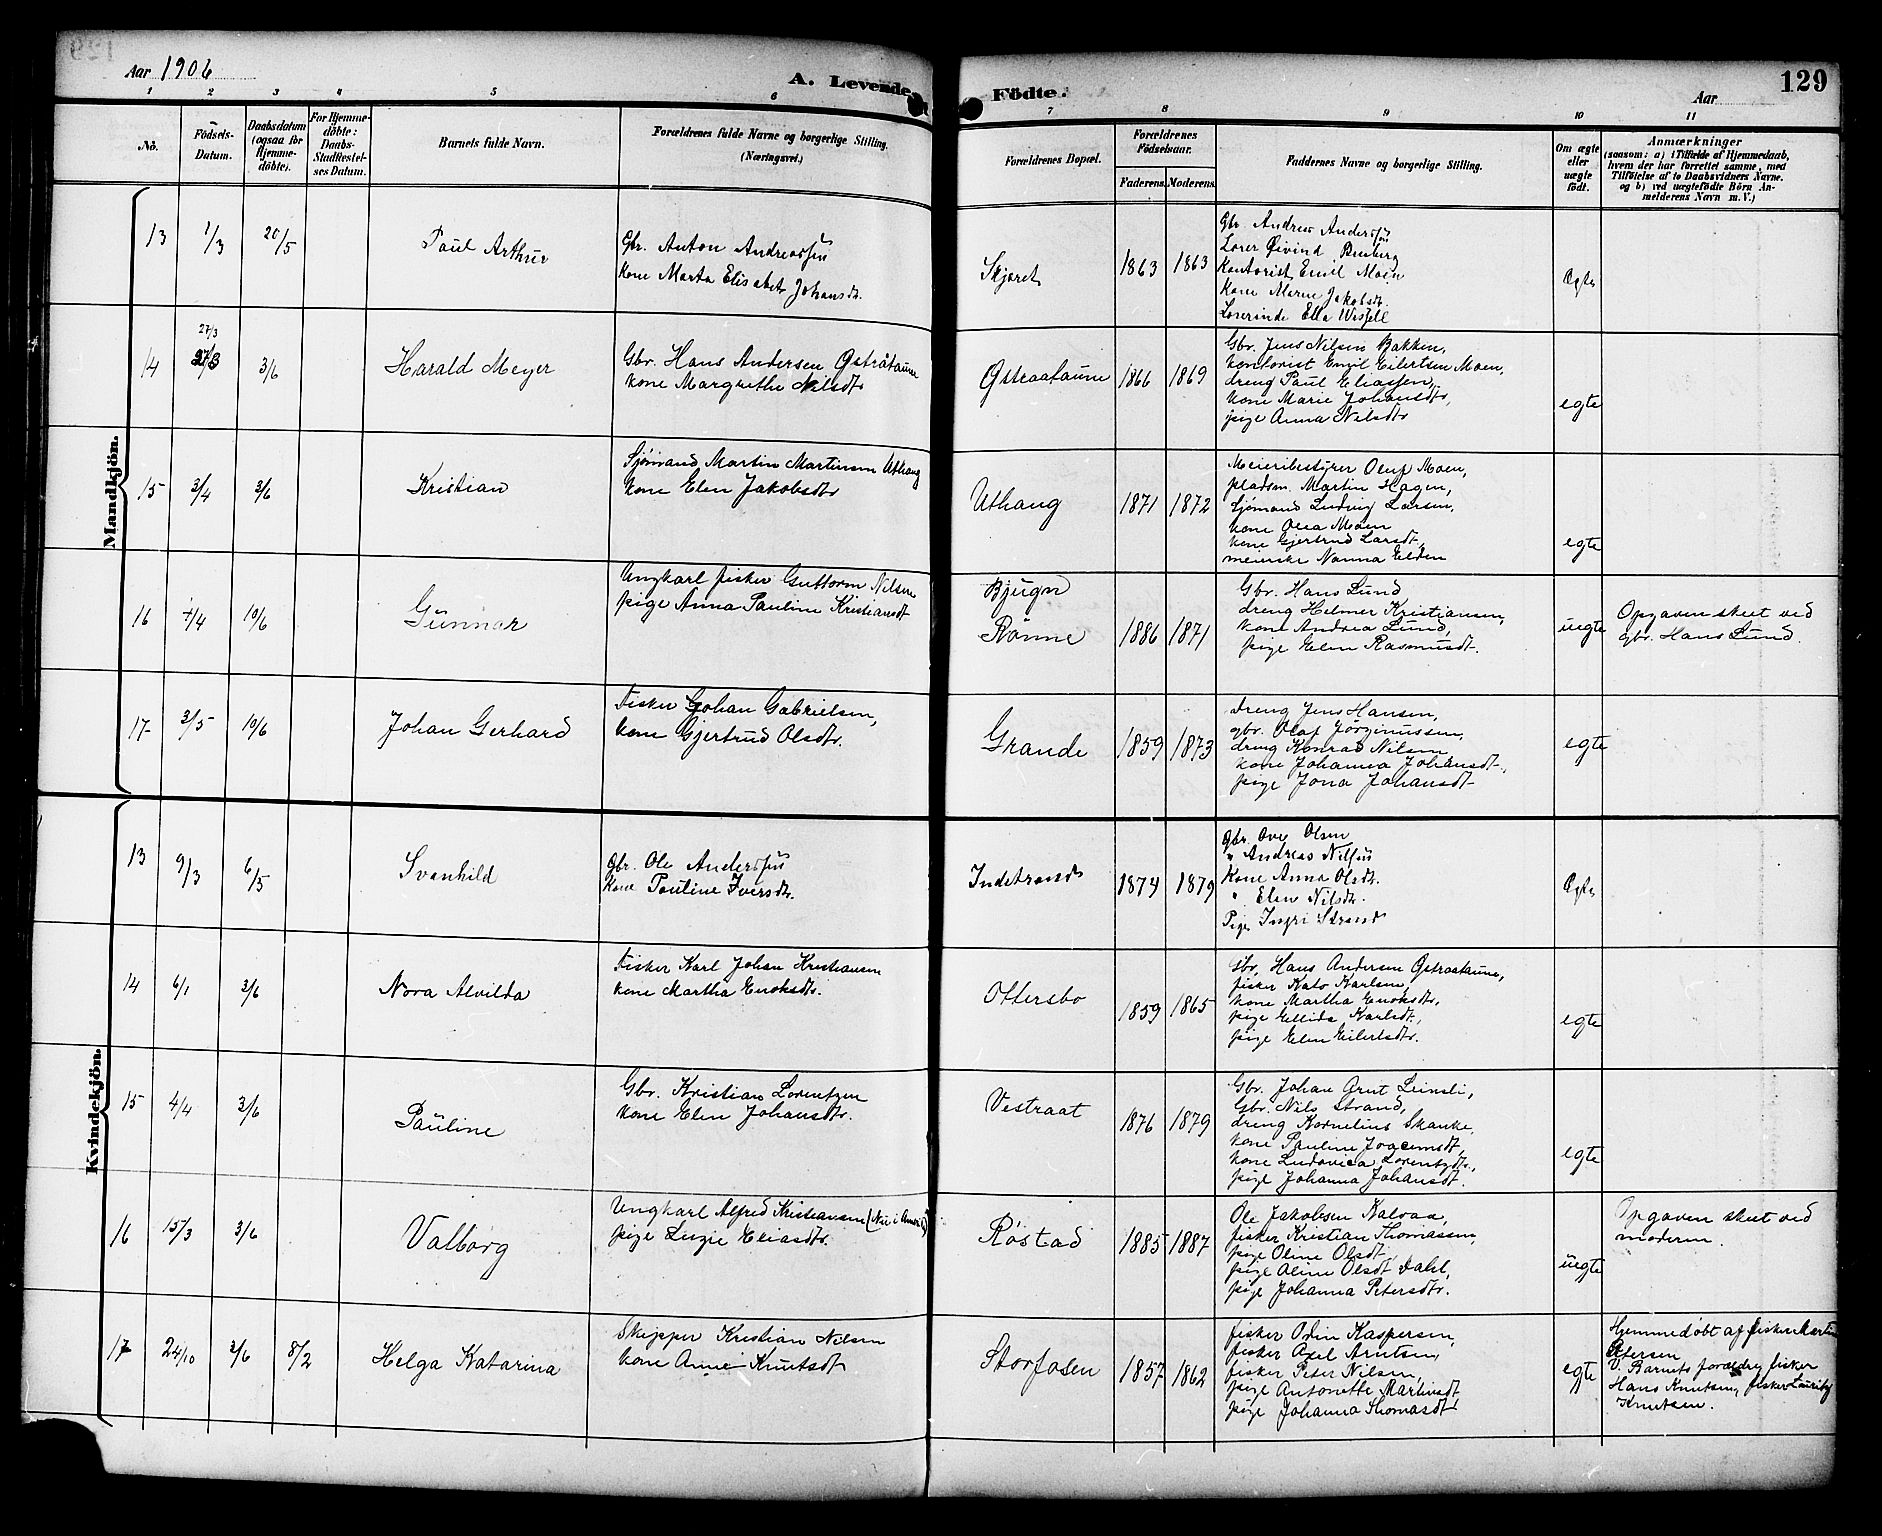 Aar 1906
A. Levende Födte.
Aar
129
1 2 3 4 5 6 7 8 9 10 11
No.
Födsels-Datum.
Daabsdatum (ogsaa for Hjemme-döbte).
For Hjemme-döbte: Daabs-Stadfæstel-ses Datum.
Barnets fulde Navn.
Forældrenes fulde Navne og borgerlige Stilling. (Næringsvei.)
Forældrenes Bopæl.
Forældrenes Födselsaar.
Faderens. Moderens.
Faddernes Navne og borgerlige Stilling.
Om ægte eller uægte födt.
Anmærkninger
(saasom: a) i Tilfælde af Hjemmedaab, hvem der har forrettet samme, med Tilföielse af to Daabsvidners Navne. og b) ved uægtefödte Börn An-melderens Navn m. V.)
Mandkjön.
13 1/3 20/5 Paul Arthur
Gbr. Anton Andreassen
kone Marta Elisabet Johansdt.
Skjøret 1863 1863
Gbr. Andreas Anderssen
Lærer Øivind
Kontorist Emil Moen
Kone Maren Jakobsdt.
Lærerinde Ella Wessell
Ægte
14 27/3 27/3 3/6 Harald Meyer
Gbr. Hans Andersen Østråtaune
kone Margrethe Nilsdtr
Østraataune 1866 1869
Gbr. Jens Nilsen Bakken,
kontorist Emil Eilertsen Moen,
dreng Paul Eliassen,
kone Marie Johansdtr,
pige Anna Nilsdtr
egte
15 3/4 3/6 Kristian
Sjømand Martin Martinsen Uthaug
kone Elen Jakobsdtr
Uthaug 1871 1872
Meieribestyrer Oluf Moen,
pladsm. Martin Hagen,
Sjømand Ludvig Larsen,
kone Olea Moen
kone Gjertrud Larsdt,
meierske Nanna Elden
egte
16 7/4 10/6 Gunnar
Ungkarl fisker Guttorm Nilsen
pige Anna Pauline Kristiansdt
Bjugn
Rønne 1886 1871
Gbr. Hans Lund
dreng Helmer Kristiansen,
kone Andrea Lund,
pige Elen Rasmusdt.
uegte
Opgaven skeet ved
gbr. Hans Lund.
17 3/5 10/6 Johan Gerhard
Fisker Johan Gabrielsen,
kone Gjertrud Olsdtr.
Grande 1859 1873
dreng Jens Hansen,
gbr. Olaf Jørginussen,
dreng Konrad Nilsen
kone Johanna Johansdt.,
pige Jona Johansdt
egte
Kvindekjön.
13 9/3 6/5 Svanhild
Gbr. Ole Anderssen
Kone Pauline Iversdtr.
Indstrand 1874 1879
Gbr. Ove Olsen
" Andreas Nilsen
Kone Anna Olsdt.
" Elen Nilsdt.
Pige Ingri Strand
Ægte
14 6/1 3/6 Nora Alvilda
Fisker Karl Johan Kristiansen
kone Martha Enoksdtr.
Ottersbo 1859 1865
Gbr. Hans Andersen Østraataune,
fisker Kato Karlsen,
kone Martha Enoksdtr,
pige Ellida Karlsdt.,
pige Elen Eilertsdtr.
egte
15 4/4 3/6 Pauline
Gbr. Kristian Lorentzen
kone Elen Johansdtr.
Vestraat 1876 1879
Gbr. Johan Arnt Leinsli,
Gbr. Nils Strand,
dreng Kornelius Skanke,
kone Pauline Joacimsdt,
kone Ludovica Lorentzdtr.,
pige Johanna Johansdt.
egte
16 15/3 3/6 Valborg
Ungkarl Alfred Kristiansen (Nu i Amerika)
pige Lizie Eliasdtr.
Røstad 1885 1887
Ole Jakobsen Kalvaa,
fisker Kristian Thomassen,
pige Oline Olsdt,
pige Aline Olsdt Dahl,
pige Johanna Petersdtr.
uegte
Opgaven skeet ved
moderen.
17 24/10 3/6 8/2 Helga Katarina
Skipper Kristian Nilsen
kone Anne Knutsdt
Storfosen 1857 1862
fisker Odin Kaspersen,
fisker Axel Arntsen,
fisker Peter Nilsen,
pige Antonette Martinsdt,
pige Johanna Thomasdt
egte
Hjemmedøbt af fisker Martin
Petersen
V. Barnets forældre, fisker
Hans Knutsen, fisker Lauritz
Knutsen.